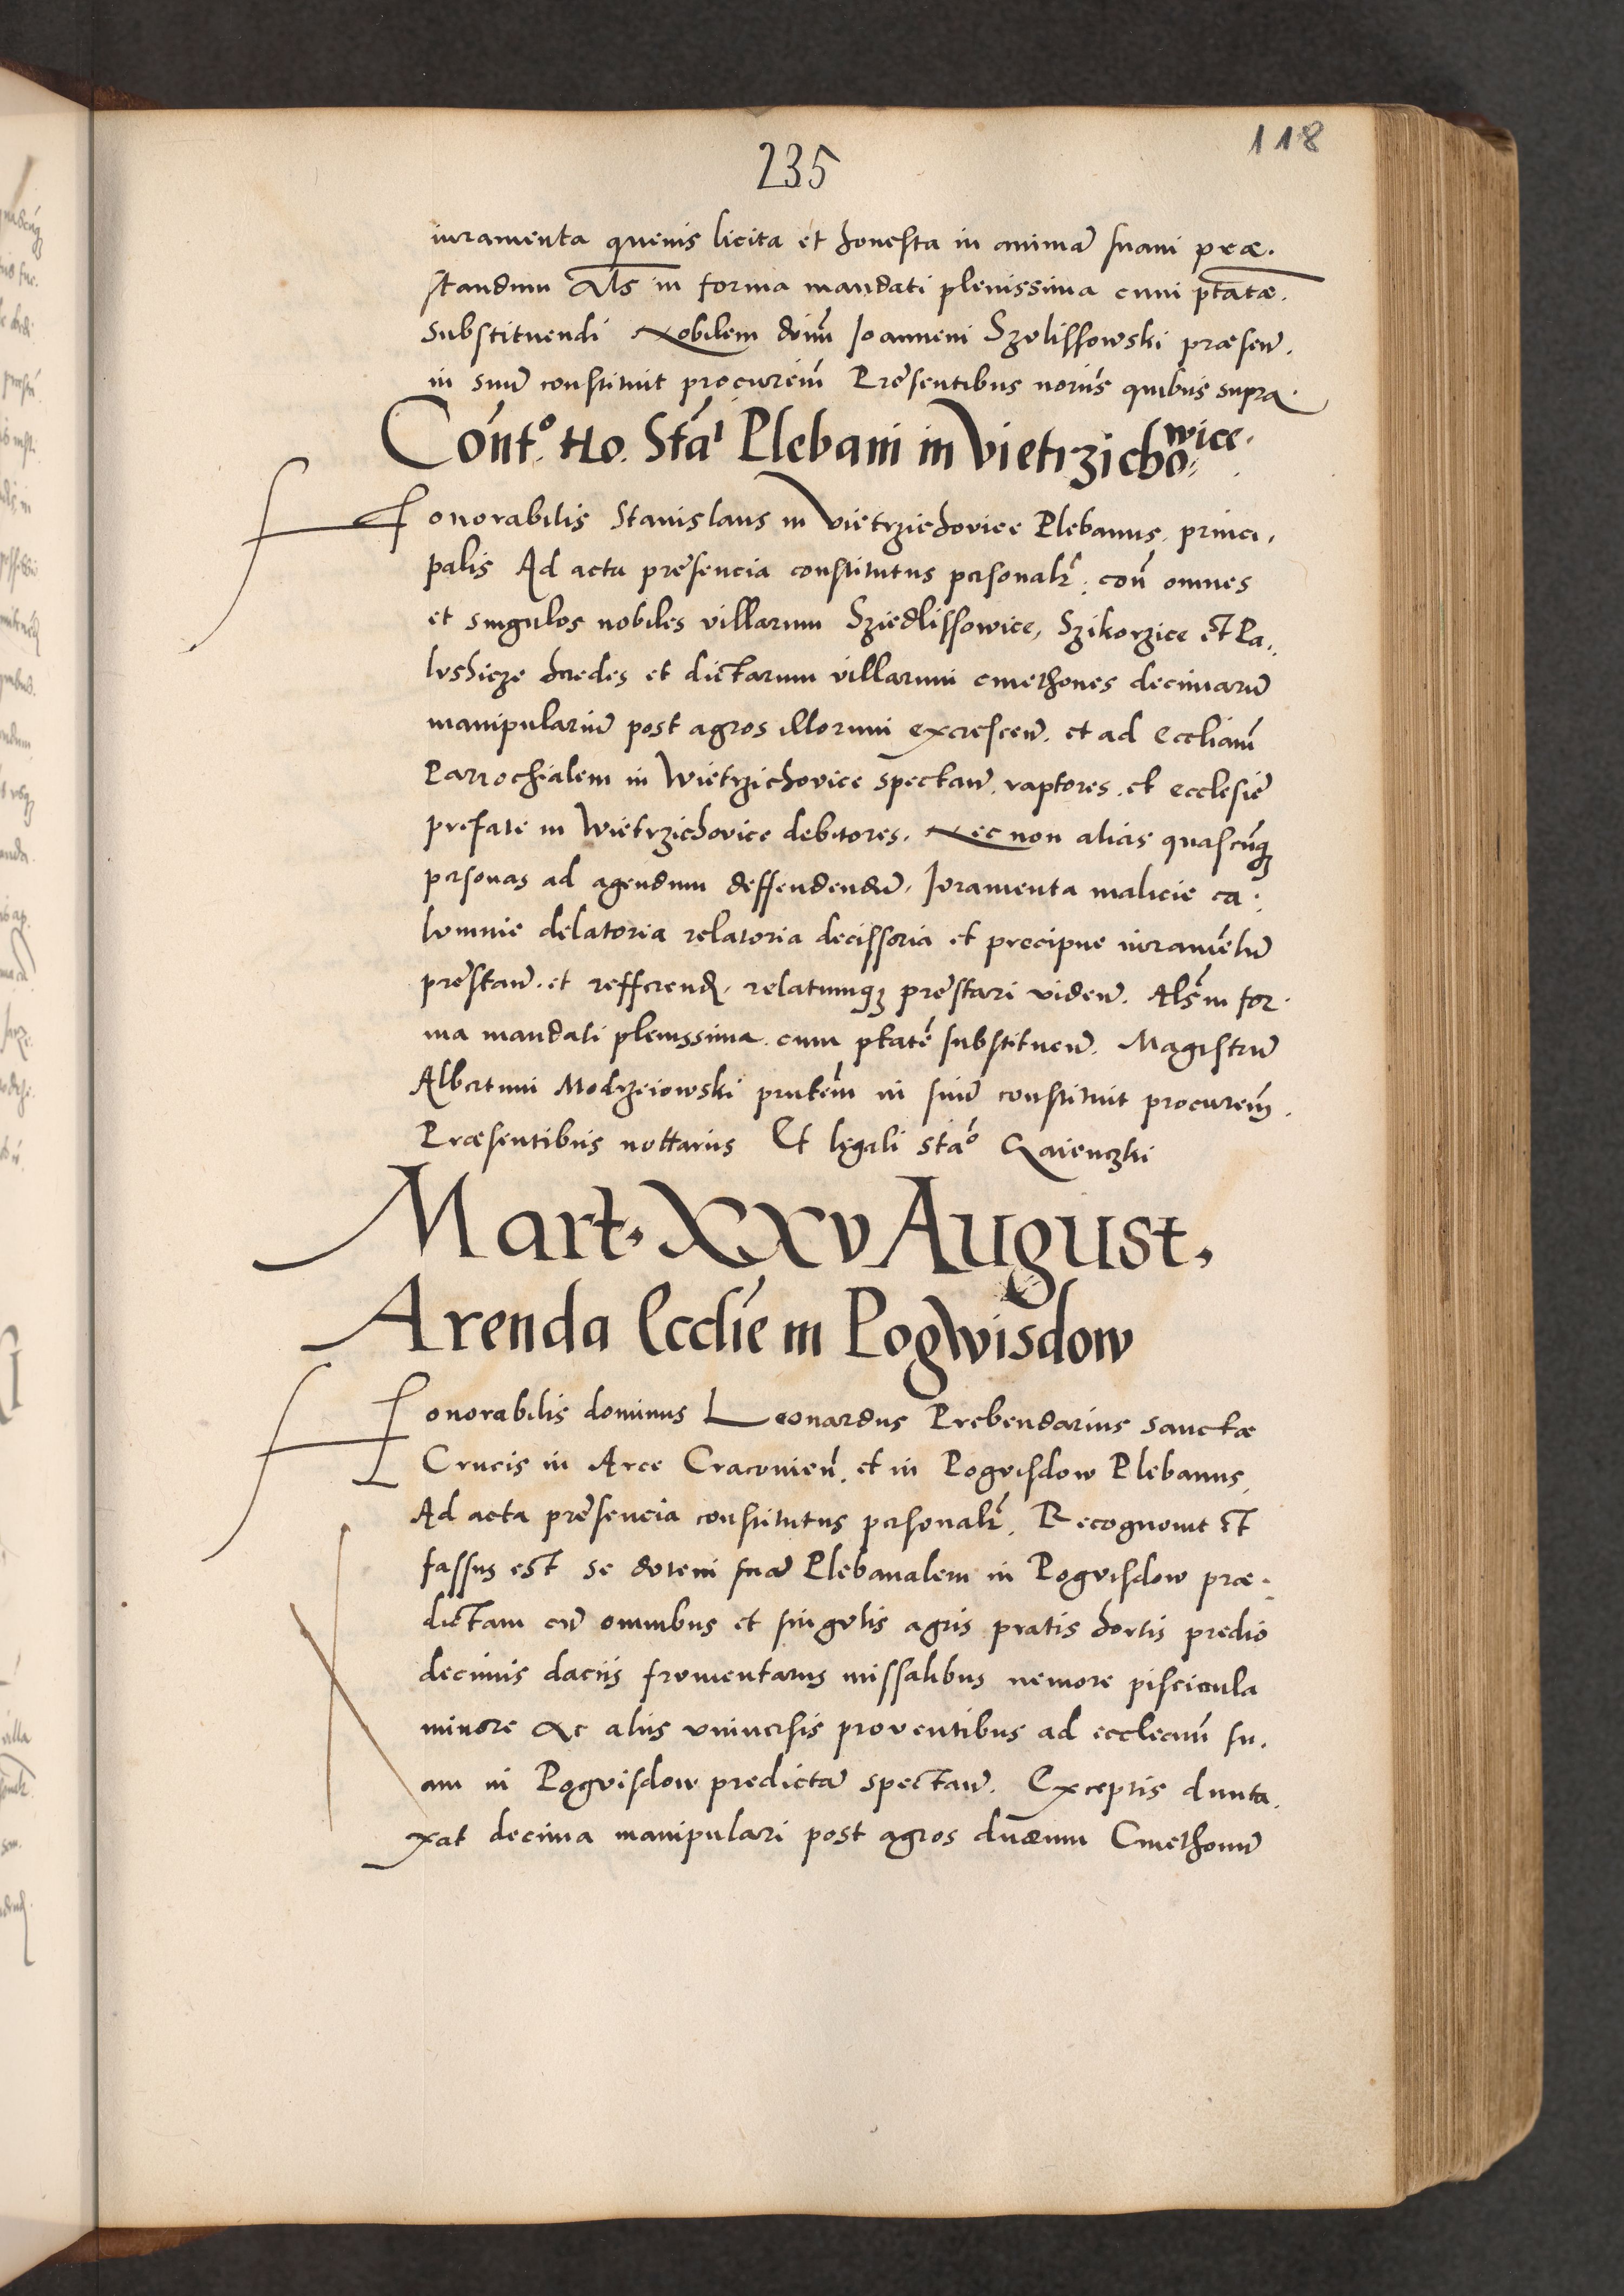 118
235
iuramenta quevis licita et honesta in animā suam præ.
standum Als̄ in forma mandati plenissima cum ptatæ.
substituendi Nobilem dn̄m Joannem Szelissowski præsen̄.
in suū constituit procurēm Presentibus notrȳs quibus supra
Cōnt.º Ho. Stāi Plebani in Vietrzicho,,wice.
Honorabilis Stanislaus in Vietrzichovice Plebanus princi,
palis Ad acta presencia constitutus personalr̄. con̄ omnes
et singulos nobiles villarum Sziedlissowice, Szikorzice et Pa,,
lvshicze hredes et dictarum villarum cmethones decimarū
manipulariū post agros illorum excrescen̄. et ad Eccliam̄
Parrochialem in Wietrzichovice spectan̄. raptores. et ecclesiē
prefate in Wietrzichovice debitores. Nec non alias quascūqȝ
personas ad agendum deffendendū. Joramenta malicie ca.
lomnie delatoria relatoria decissoria et precipue iuramētū
prestan̄. et refferend. relatumqȝ prestari viden̄. Als̄ in for.
ma mandati plenissima cum ptatē substituen̄. Magistrū
Albertum Modrzeiowski pn̄tem̄ in suū constituit procurem̄.
Præsentibus nottariis Et legali stāo Zaienczki
Mart. XXV August.
Arenda Ecclīe in Pogwisdow
Honorabilis dominus Leonardus Prebendarius sanctæ
Crucis in Arce Cracovien̄. et in Pogvisdow Plebanus,
Ad acta presencia constitutus personalr̄. Recognovit et
fassus est se dotem suā Plebanalem in Pogvisdow præ.
dictam cū omnibus et singvlis agris pratis hortis predio
decimis daciis frumentariis missalibus nemore piscicula
minore Ac aliis vniversis proventibus ad ecclecim̄ su.
am in Pogvisdow predictā spectan̄. Exceptis dunta.
xat decima manipulari post agros duorum Cmethonū